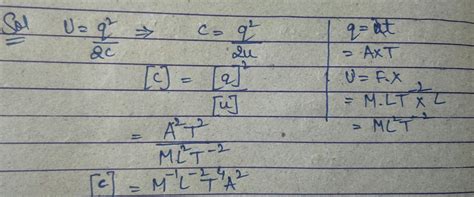 Sol U = q²/2c ⇒ c = q²/2u
[c] = [q]²/[u]
= A²T²/ML²T⁻²
[c] = M⁻¹L⁻²T⁴A²
q = it
= A×T
U = F.x
= M.LT⁻² × L
= ML²T⁻²